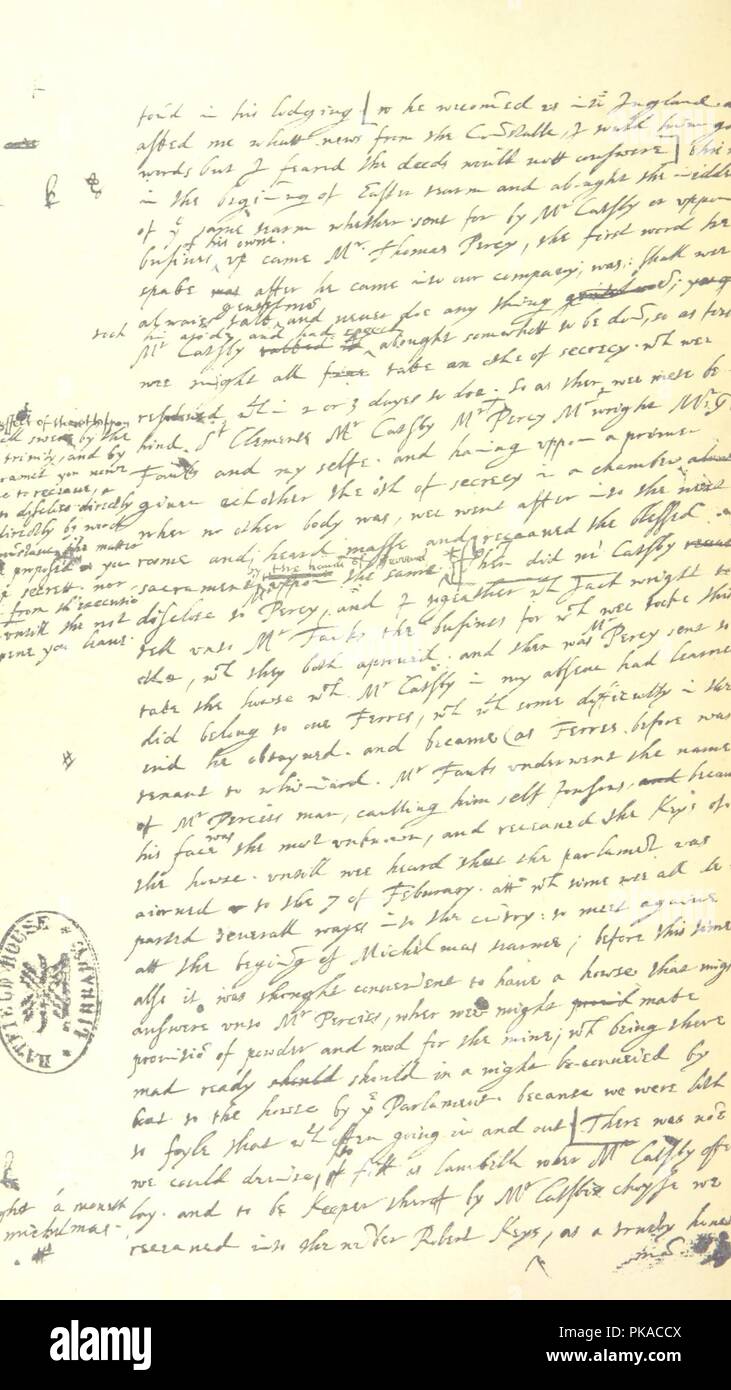 found in his lodging so he recomed us into Ingland
asked me whatt news from the Constable, I tould him good
words but I feared the deeds would nott answere
in the begining of Easter tearm and abought the midde
of yᵉ same tearm whether sent for by Mʳ Catsby or uppon
of his owne.
business up came Mʳ. Thomas Percy, the first word he
spake after he came into our company; was: shall we
gentlemē
alwaies talk and never doe any thing
took
his aside and had speech
Mʳ Catsby abought somewhatt to be don, so as first
wee might all take an othe of secrecy. wᶜh wee
resolved wᵗʰ in 2 or 3 dayes to doe. So as ther wee mett be
hind Sᵗ Clements Mʳ Catsby Mʳ Percy Mʳ wright Mʳ
Fauks and my selfe. and having uppon a primer
given ech other the oth of secrecy in a chamber
wher no other body was, wee went after into the next
roome and heard masse and receaved the blessed
sacrament uppon the same. Then did mʳ Catsby
disclose to Percy, and I together wᵗʰ Jack wright to
tell unto Mʳ Fauks the business for wᶜh wee tooke this
othe, wᶜh they both aproved. and then was Mʳ Percy sent to
take the house wᶜh Mʳ Catsby in my absence had learnt
did belong to one Ferres, wᶜh wᵗʰ some difficulty in the
end he obtayned. and became (as Ferres before was
tenant to whiniard. Mʳ Fauks underwent the name
of Mʳ Percies man, caulling him self Jonson, because
his face was the most unknown, and receaved the Keys of
the house. untill wee heard that the parlament was
aiorned to the 7 of Feburary. att wᶜh time wee all de
parted severall wayes into the cuntry: to meet agayne
att the begining of Michelmas tearme; before this time
also it was thought convenient to have a howse that migh
answere unto Mʳ Percies, wher wee might make
provisiō of powder and wood for the mine; wᶜh being there
mad ready should in a night be conveied by
boat to the howse by yᵉ Parlament. because we were loth
to foyle that wᵗʰ often going in and out There was none
we could devise, so fitt as Lambeth wher Mʳ Catsby often
lay. and to be Keeper therof by Mʳ Catsbies choysse we
receaved into the number Robert Keys, as a trusty honest
man
effect of the oth
swear by the
trinity, and by
you now
to receave,
to disclose directly
directly by word
the matter
proposed to you
secrett. nor
from the execution
untill the rest
you leave.
a moneth
michelmas.
HATFIELD HOUSE LIBRARY
alamy
Image ID: PKACCX
www.alamy.com